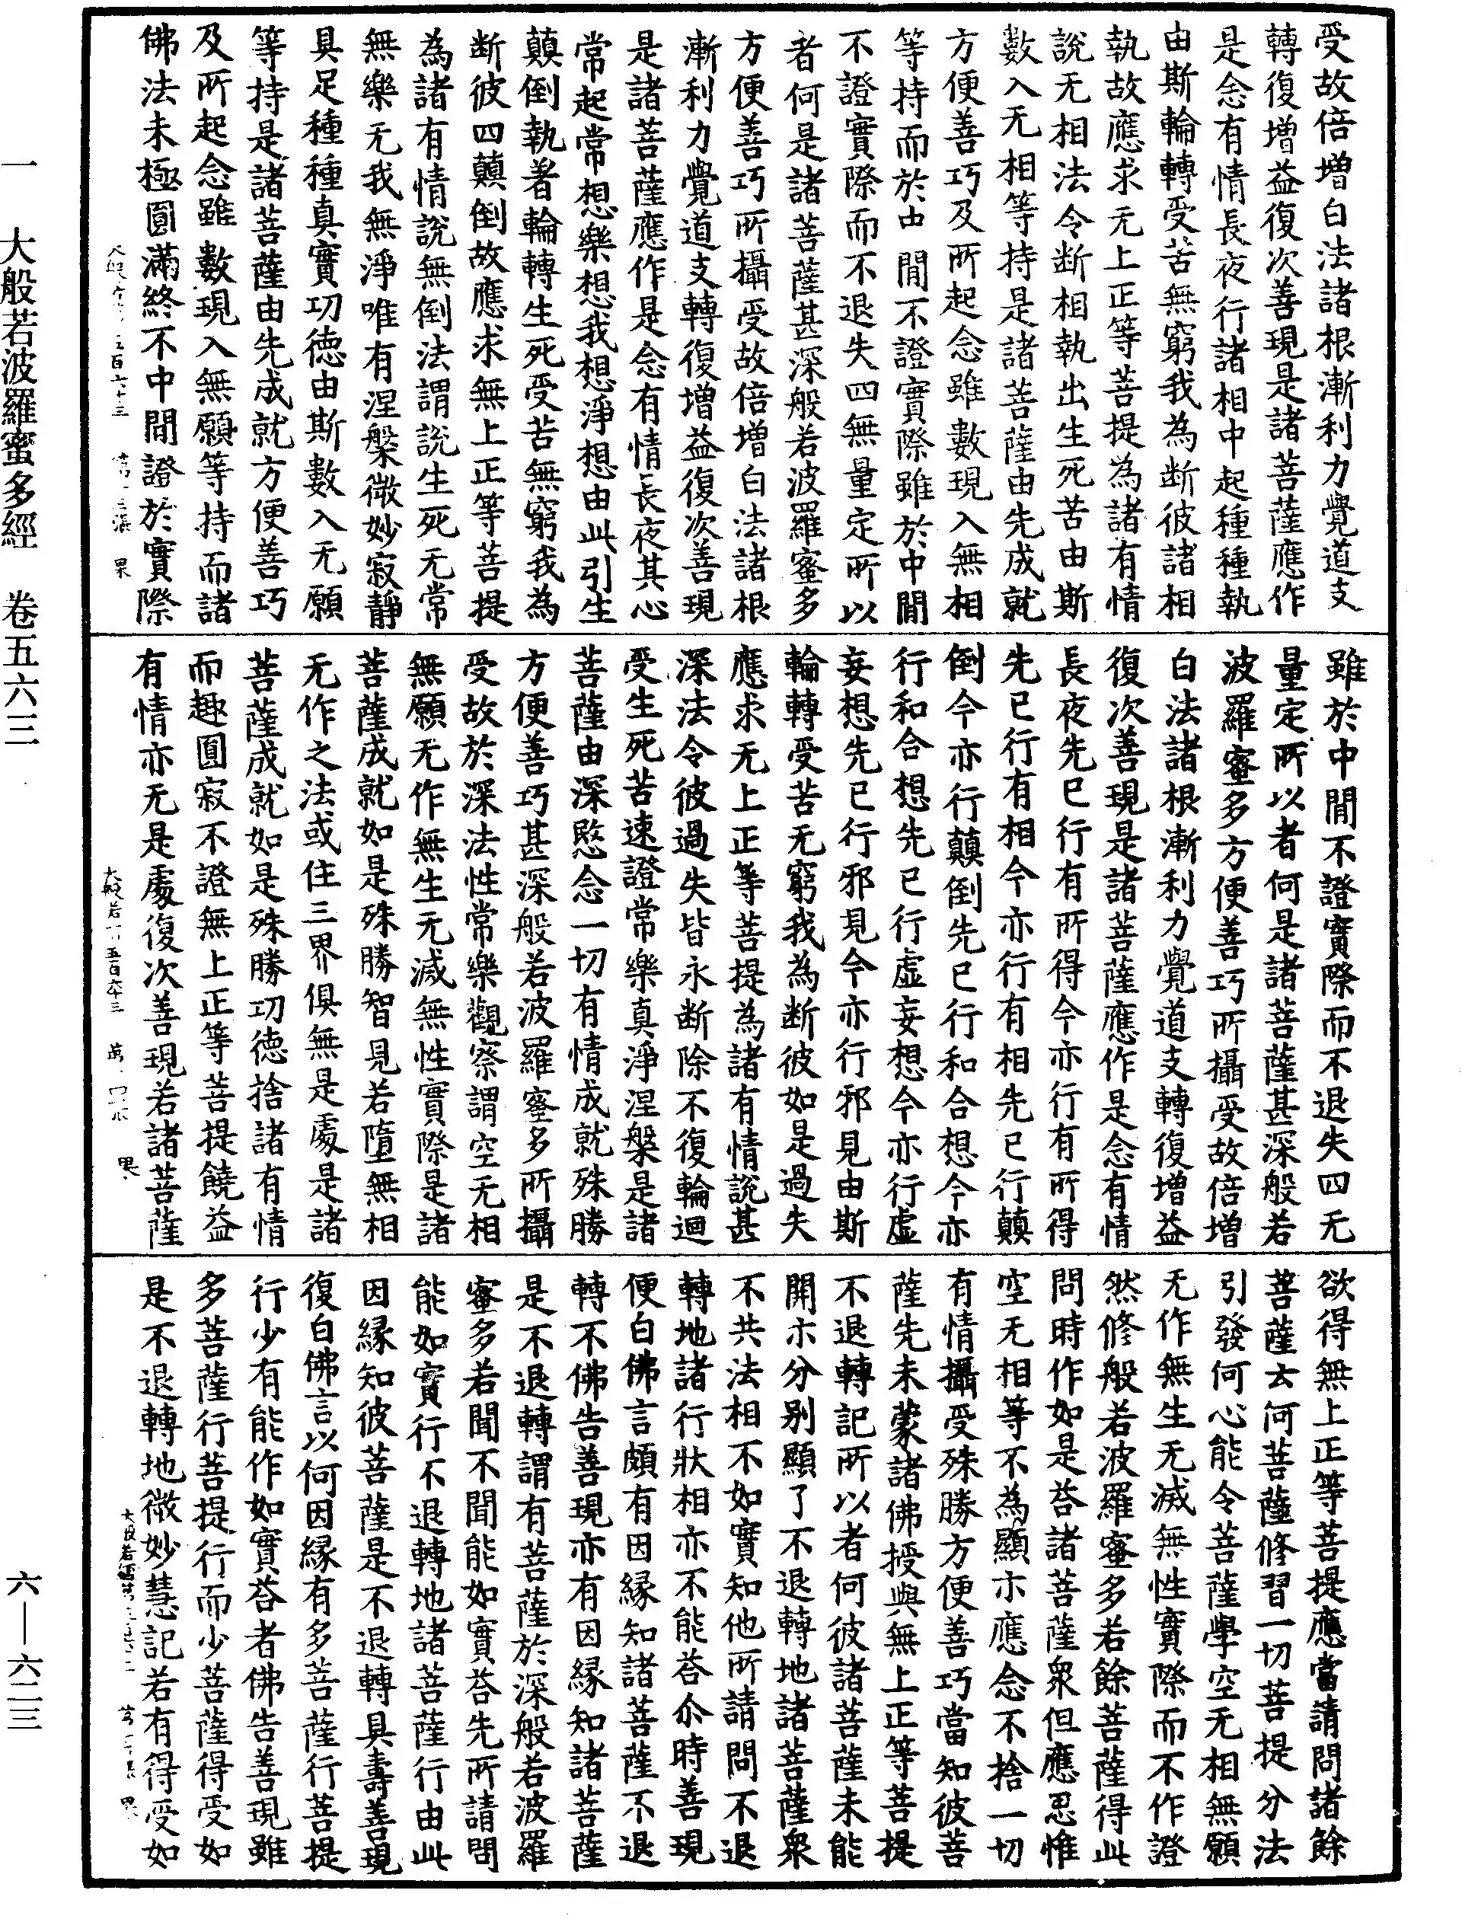 受故倍增白法諸根漸利力覺道支
轉復增益復次善現是諸菩薩應作
是念有情長夜行諸相中起種種執
由斯輪轉受苦無窮我為断彼諸相
執故應求无上正等菩提為諸有情
說无相法令断相執出生死苦由斯
數入无相等持是諸菩薩由先成就
方便善巧及所起念雖數現入無相
等持而於中間不證實際雖於中間
不證實際而不退失四無量定所以
者何是諸菩薩甚深般若波羅蜜多
方便善巧所攝受故倍增白法諸根
漸利力覺道支轉復增益復次善現
是諸菩薩應作是念有情長夜其心
常起常想樂想我想淨想由此引生
顛倒執著輪轉生死受苦無窮我為
断彼四顛倒故應求無上正等菩提
為諸有情說無倒法謂說生死无常
無樂无我無淨唯有涅槃微妙寂靜
具足種種真實功德由斯數入无願
等持是諸菩薩由先成就方便善巧
及所起念雖數現入無願等持而諸
佛法未極圓滿終不中間證於實際
雖於中間不證實際而不退失四无
量定所以者何是諸菩薩甚深般若
波羅蜜多方便善巧所攝受故倍增
白法諸根漸利力覺道支轉復增益
復次善現是諸菩薩應作是念有情
長夜先已行有所得今亦行有所得
先已行有相今亦行有相先已行顛
倒今亦行顛倒先已行和合想今亦
行和合想先已行虛妄想今亦行虛
妄想先已行邪見今亦行邪見由斯
輪轉受苦无窮我為断彼如是過失
應求无上正等菩提為諸有情說甚
深法令彼過失皆永断除不復輪迴
受生死苦速證常樂真淨涅槃是諸
菩薩由深愍念一切有情成就殊勝
方便善巧甚深般若波羅蜜多所攝
受故於深法性常樂觀察謂空无相
無願无作無生无滅無性實際是諸
菩薩成就如是殊勝智見若墮無相
无作之法或住三界俱無是處是諸
菩薩成就如是殊勝功德捨諸有情
而趣圓寂不證無上正等菩提饒益
有情亦无是處復次善現若諸菩薩
欲得無上正等菩提應當請問諸餘
菩薩云何菩薩修習一切菩提分法
引發何心能令菩薩學空无相無願
无作無生无滅無性實際而不作證
然修般若波羅蜜多若餘菩薩得此
問時作如是荅諸菩薩衆但應思惟
空无相等不為顯示應念不捨一切
有情攝受殊勝方便善巧當知彼菩
薩先未蒙諸佛授與無上正等菩提
不退轉記所以者何彼諸菩薩未能
開示分別顯了不退轉地諸菩薩衆
不共法相不如實知他所請問不退
轉地諸行狀相亦不能荅尒時善現
便白佛言頗有因緣知諸菩薩不退
轉不佛告善現亦有因緣知諸菩薩
是不退轉謂有菩薩於深般若波羅
蜜多若聞不聞能如實荅先所請問
能如實行不退轉地諸菩薩行由此
因緣知彼菩薩是不退轉具壽善現
復白佛言以何因緣有多菩薩行菩提
行少有能作如實荅者佛告善現雖
多菩薩行菩提行而少菩薩得受如
是不退轉地微妙慧記若有得受如
一 大般若波羅蜜多經 卷五六三
六—六二三